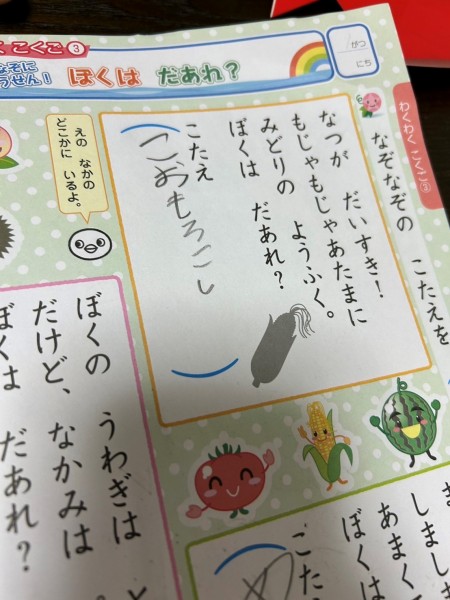 く こくご③
なぞに
うせん!
ぼくは だあれ?
がつ
にち
わくわく こくご③
なぞなぞの こたえを
なつが だいすき!
もじゃもじゃあたまに
みどりの ようふく。
ぼくは だあれ?
こたえ
こおもろこし
えの なかの
どこかに いるよ。
ぼくの うわぎは
だけど、なかみは
ぼくは だあれ?
ま
しまし
あまく
ぼくは
こた